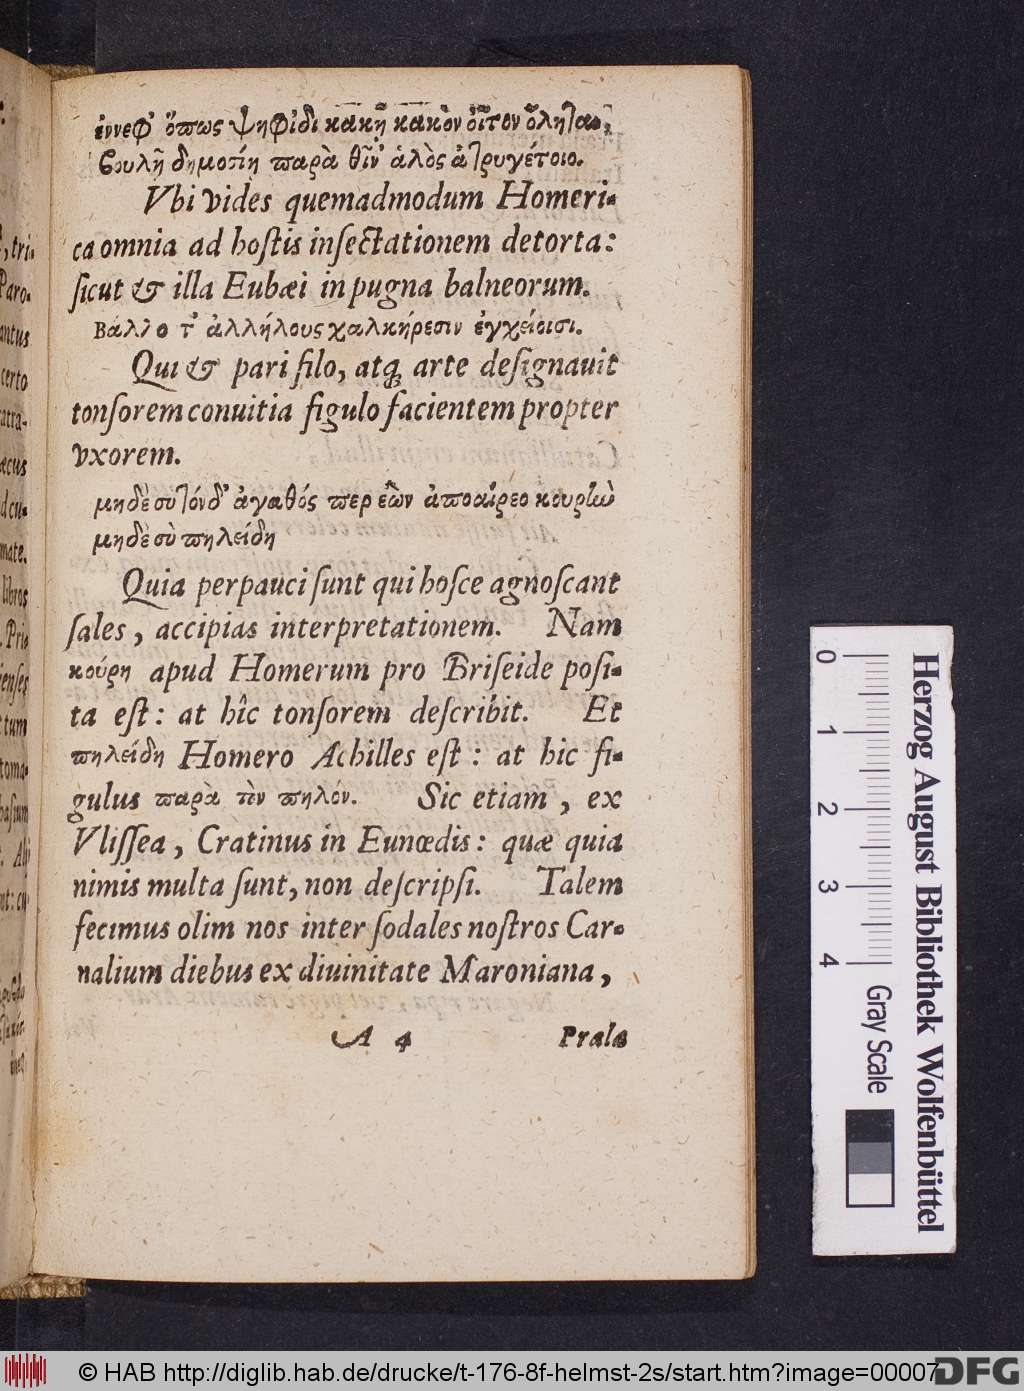 ἐννεφ' ὅπως ψηφίδι κακῇ κακὸν οἶτον ὄληται,
βουλῇ δημοσίῃ παρὰ θῖν' ἁλὸς ἀτρυγέτοιο.
Vbi vides quemadmodum Homeri-
ca omnia ad hostis insectationem detorta:
sicut & illa Eubæi in pugna balneorum.
Βάλλο τ' ἀλλήλους χαλκήρεσιν ἐγχείοισι.
Qui & pari filo, atq; arte designauit
tonsorem conuitia figulo facientem propter
vxorem.
μηδὲ σὺ τόνδ' ἀγαθός περ ἐὼν ἀποαίρεο κουρεὺ
μηδὲ σὺ πηλείδη
Quia perpauci sunt qui hosce agnoscant
sales, accipias interpretationem. Nam
κούρη apud Homerum pro Briseide posi-
ta est: at hîc tonsorem describit. Et
πηλείδη Homero Achilles est: at hic fi-
gulus παρὰ τὸν πηλόν. Sic etiam, ex
Vlissea, Cratinus in Eunœdis: quæ quia
nimis multa sunt, non descripsi. Talem
fecimus olim nos inter sodales nostros Car-
nalium diebus ex diuinitate Maroniana,
A 4 Prala
0 1 2 3 4
Herzog August Bibliothek Wolfenbüttel
Gray Scale
© HAB http://diglib.hab.de/drucke/t-176-8f-helmst-2s/start.htm?image=00007
DFG